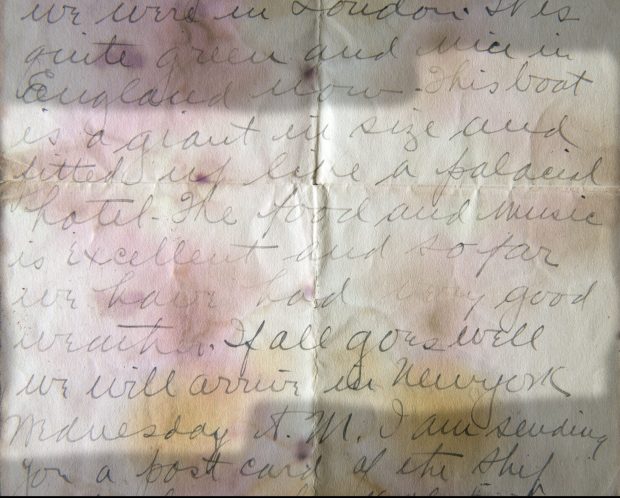 we were in London. It is
quite green and nice in
England now. This boat
is a giant in size and
fitted up like a palacial
hotel. The food and music
is excellent and so far
we have had very good
weather. If all goes well
we will arrive in New york
Wednesday A.M. I am sending
you a post card of the ship